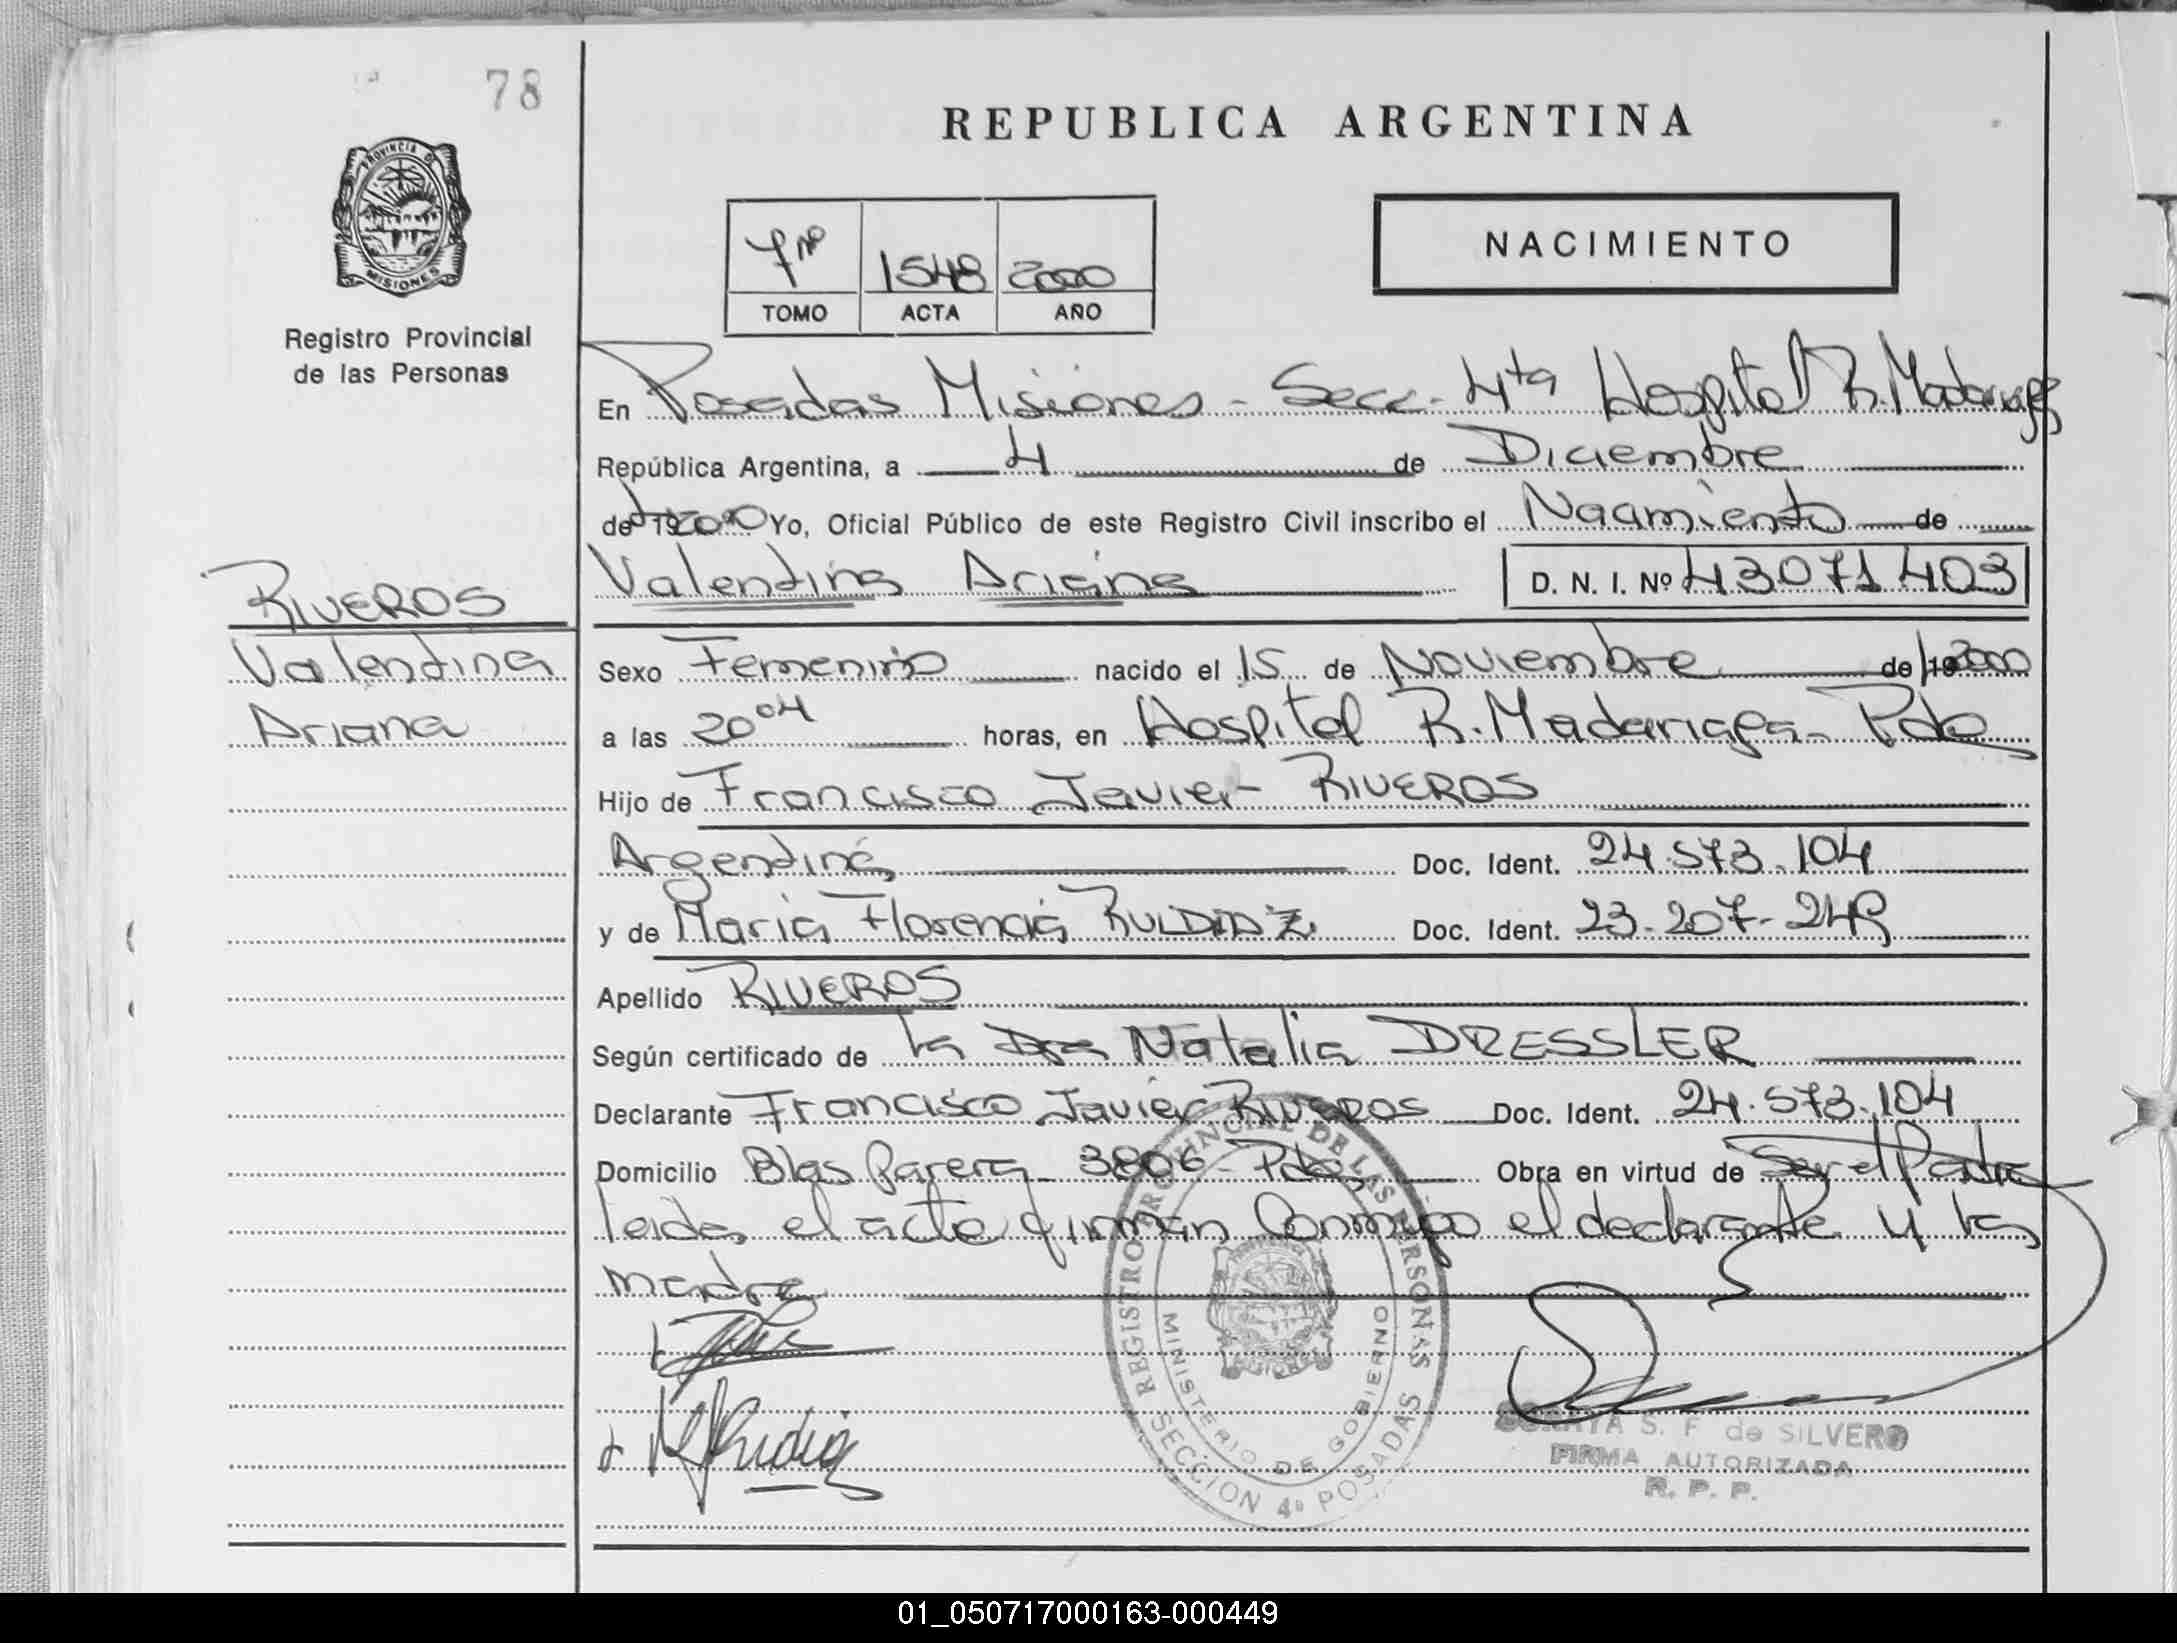 78
REPUBLICA ARGENTINA
PROVINCIA DE
MISIONES
Registro Provincial
de las Personas
NACIMIENTO
1548 2000
TOMO ACTA AÑO
En Posadas Misiones - Secc. 4ta Hospital R. Madariaga
República Argentina, a 4 de Diciembre
de 2000 Yo, Oficial Público de este Registro Civil inscribo el Nacimiento de
Valentina Ariana D. N. I. Nº 43.071.403
RIVEROS
Valentina
Ariana
Sexo Femenino nacido el 15 de Noviembre de 2000
a las 20 04 horas, en Hospital R. Madariaga - Pdas
Hijo de Francisco Javier RIVEROS
Argentina Doc. Ident. 24.573.104
y de Maria Florencia Doc. Ident. 23.207.249
Apellido RIVEROS
Según certificado de la Dra Natalia DRESSLER
Declarante Francisco Javier RIVEROS Doc. Ident. 24.573.104
Domicilio Blas Parera 3806 - Pdas Obra en virtud de Ser el Padre
leida el acta firman Conmigo el declarante y la
madre
REGISTRO PROVINCIAL DE LAS PERSONAS
MINISTERIO DE GOBIERNO
SECCION 4ª POSADAS
S. F. de SILVERO
FIRMA AUTORIZADA
R. P. P.
01_050717000163-000449